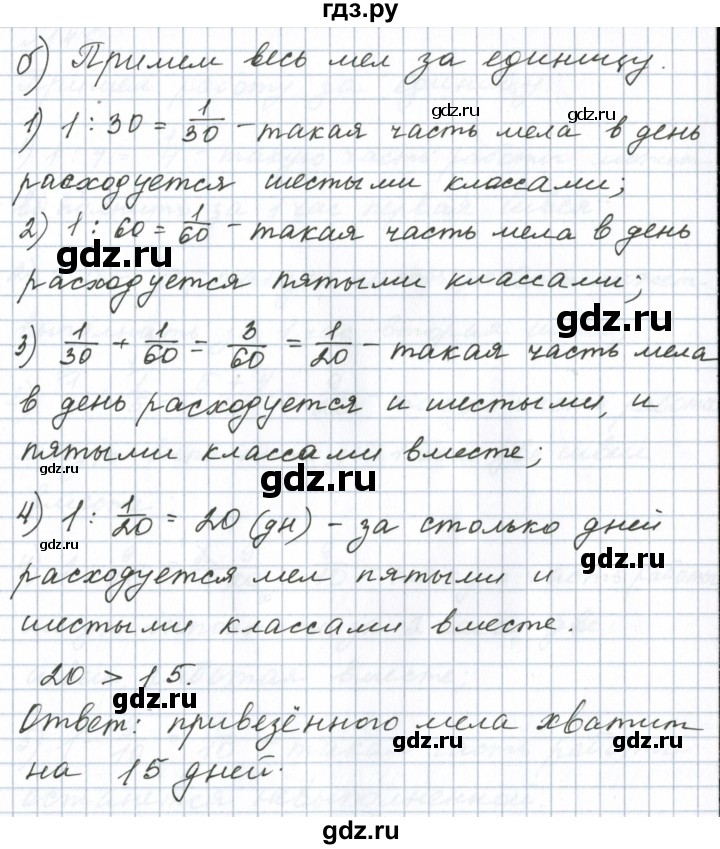 гдз.ру
б) Примем весь мел за единицу.
gdz.ru gdz.ru
1) 1 : 30 = 1/30 - такая часть мела в день
расходуется шестыми классами;
2) 1 : 60 = 1/60 - такая часть мела в день
gdz.ru
расходуется пятыми классами;
gdz.ru
3) 1/30 + 1/60 = 3/60 = 1/20 - такая часть мела
в день расходуется и шестыми, и
пятыми классами вместе;
gdz.ru gdz.ru
4) 1 : 1/20 = 20 (дн) - за столько дней
gdz.ru gdz.ru
расходуется мел пятыми и
шестыми классами вместе.
20 > 15.
gdz.ru
Ответ: привезённого мела хватит
gdz.ru gdz.ru
на 15 дней.
gdz.ru